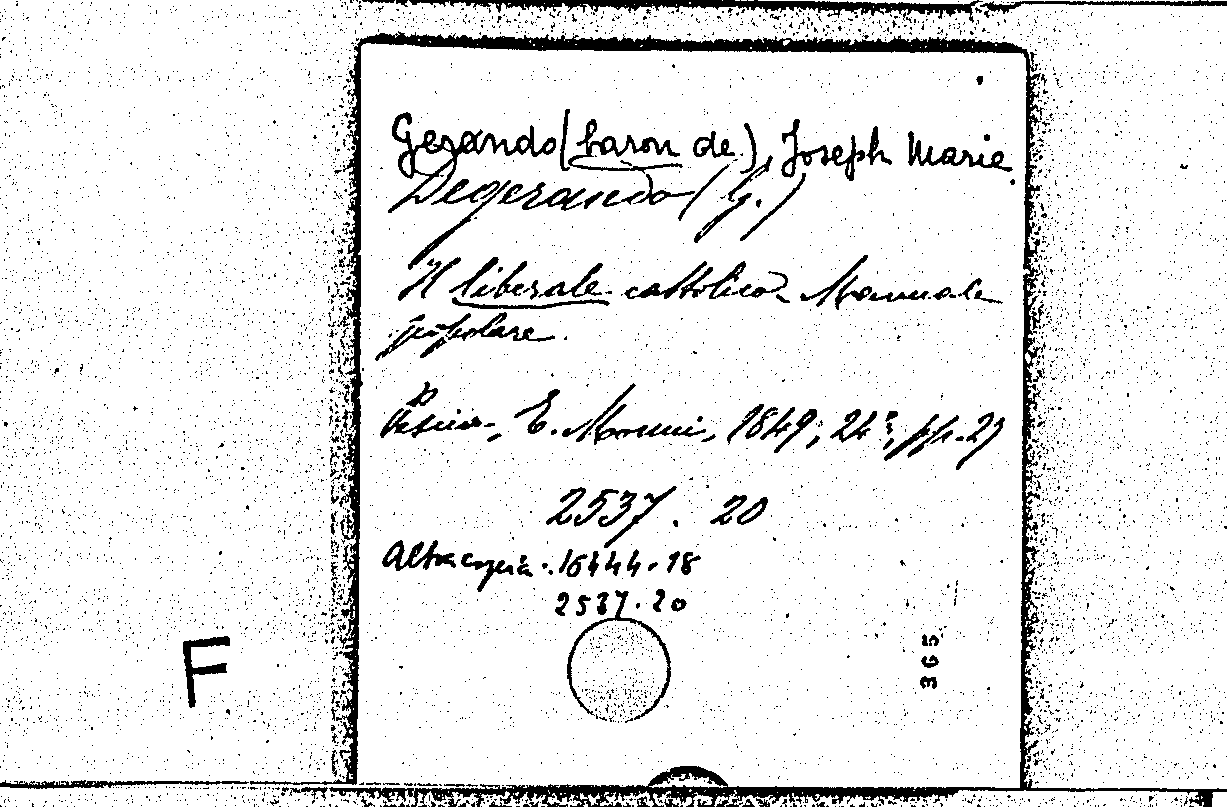 Gerando (baron de), Joseph Marie.
Degerando (G.)
Il liberale cattolico. Manuale
popolare.
E. Morucci, 1849; 24º; pp. 27
2537. 20
Altra copia. 16444.18
2537.20
F
365